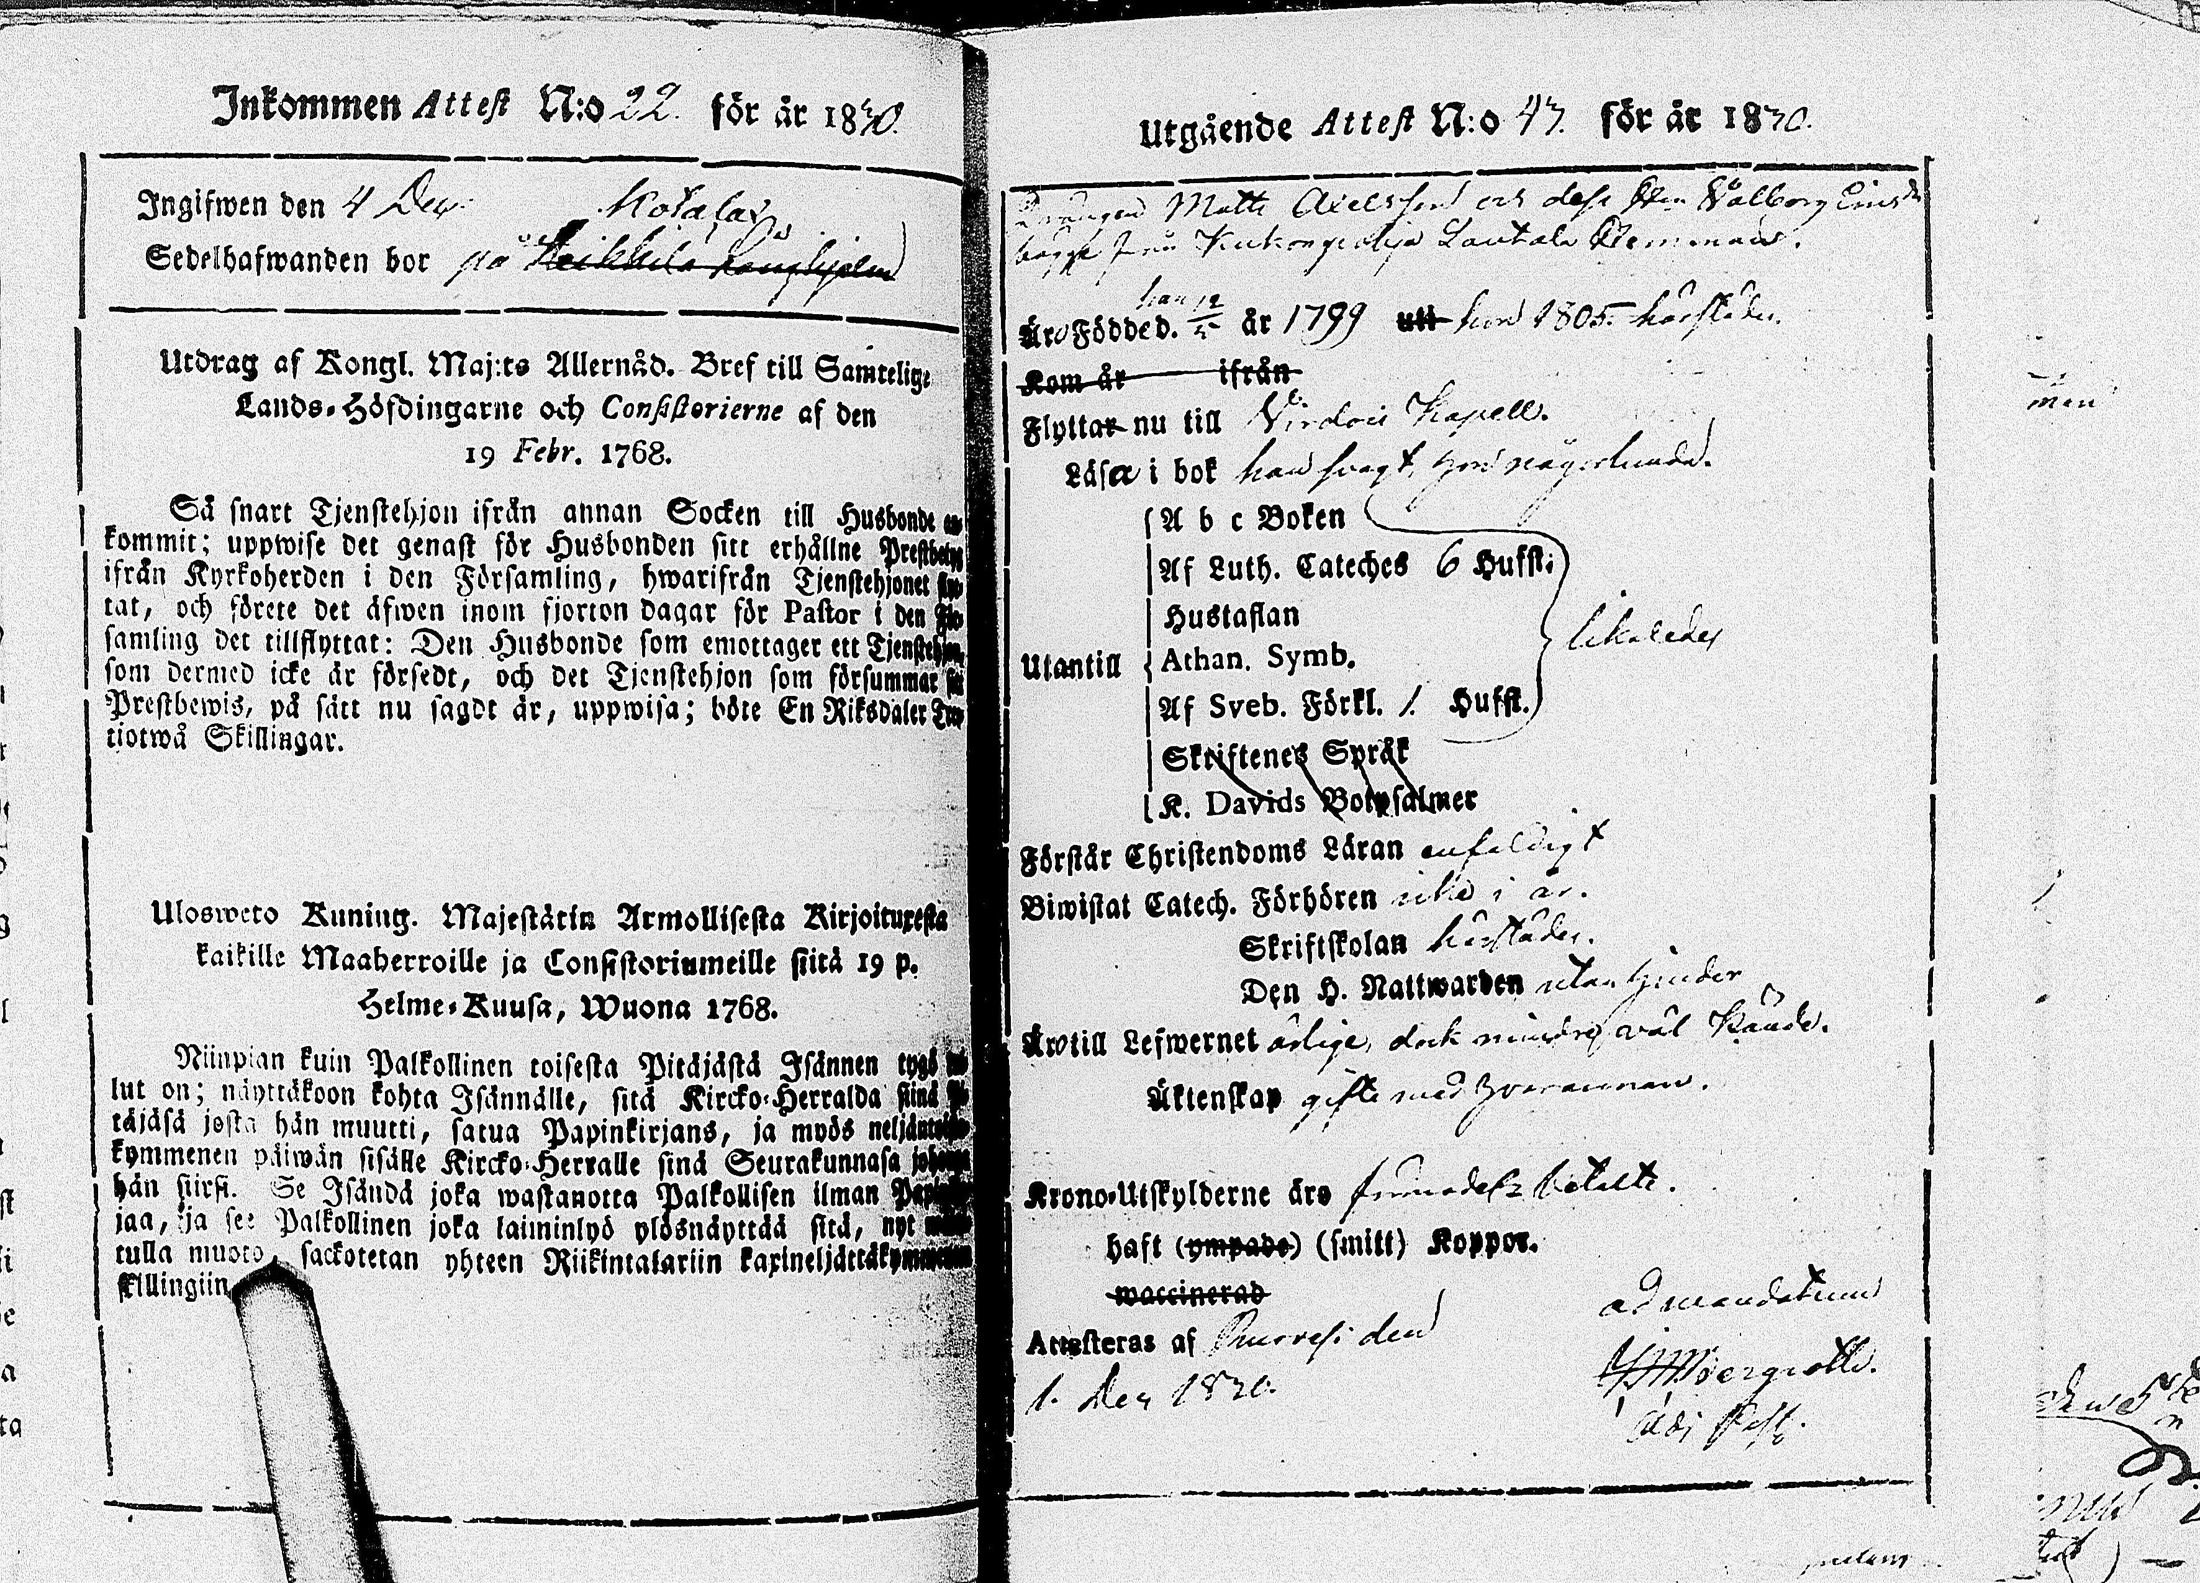 Inkommen Attest N:o 22. för år 1830.
Ingifwen den 4 Dec.
Kotala
Sedelhafwanden bor på Heikkilä
Utdrag af Kongl. Maj:ts Allernåd. Bref till Samtelige
Lands-Höfdingarne och Consistorierne af den
19 Febr. 1768.
Så snart Tjenstehjon ifrån annan Socken till Husbonde
kommit; uppwise det genast för Husbonden sitt erhållne Prestbetyg
ifrån Kyrkoherden i den Församling, hwarifrån Tjenstehjonet
tat, och förete det äfwen inom fjorton dagar för Pastor i den
samling det tillflyttat: Den Husbonde som emottager ett Tjenstehjon,
som dermed icke är försedt, och det Tjenstehjon som försummar
Prestbewis, på sätt nu sagdt är, uppwisa; böte En Riksdaler
tiotwå Skillingar.
Ulosweto Kuning. Majestätin Armollisesta Kirjoituxesta
kaikille Maaherroille ja Consistoriumeille siitä 19 p.
Helme-Kuusa, Wuona 1768.
Niinpian kuin Palkollinen toisesta Pitäjästä Isännen tygö
lut on; näyttäkoon kohta Isännälle, sitä Kircko-Herralda siinä
täjäsä josta hän muutti, satua Papinkirjans, ja myös neljäntoista
kymmenen päiwän sisälle Kircko-Herralle sinä Seurakunnasa johonga
hän siirsi. Se Isändä joka wastanotta Palkollisen ilman
jaa, ja see Palkollinen joka laiminlyö ylösnäyttää sitä, nyt
tulla muoto, sackotetan yhteen Riikintalariin kaxineljättäkymmenen
skillingiin
Utgående Attest N:o 43. för år 1830.
Drängen Matts Axelsson och dess Hu Walborg
bägge från Lautala Hemman.
Äro Födde d. han 12/5 år 1799 utt hon 1805 härstädes.
Kom år ifrån
Flyttar nu till Virdois Kapell.
Läsa i bok han swagt, hon någorlunda.
A b c Boken
Af Luth. Cateches 6 Hufst.
Hustaflan
Utantill Athan. Symb. likaledes
Af Sveb. Förkl. 1. Hufst.
Skriftenes Språk
K. Davids Botpsalmer
Förstår Christendoms Läran enfaldigt
Biwistat Catech. Förhören icke i år.
Skriftskolan härstädes.
Den H. Nattwarden utan hinder
Äro till Lefwernet ärlige, dock mindre wäl kände.
Äktenskap gifte med hwarannan.
Krono-Utskylderne äro betalte.
haft (ympade) (smitt) Koppor.
waccinerad
Attesteras af Ruovesi den ad mandatum
1. Dec 1830.
Adj Past.